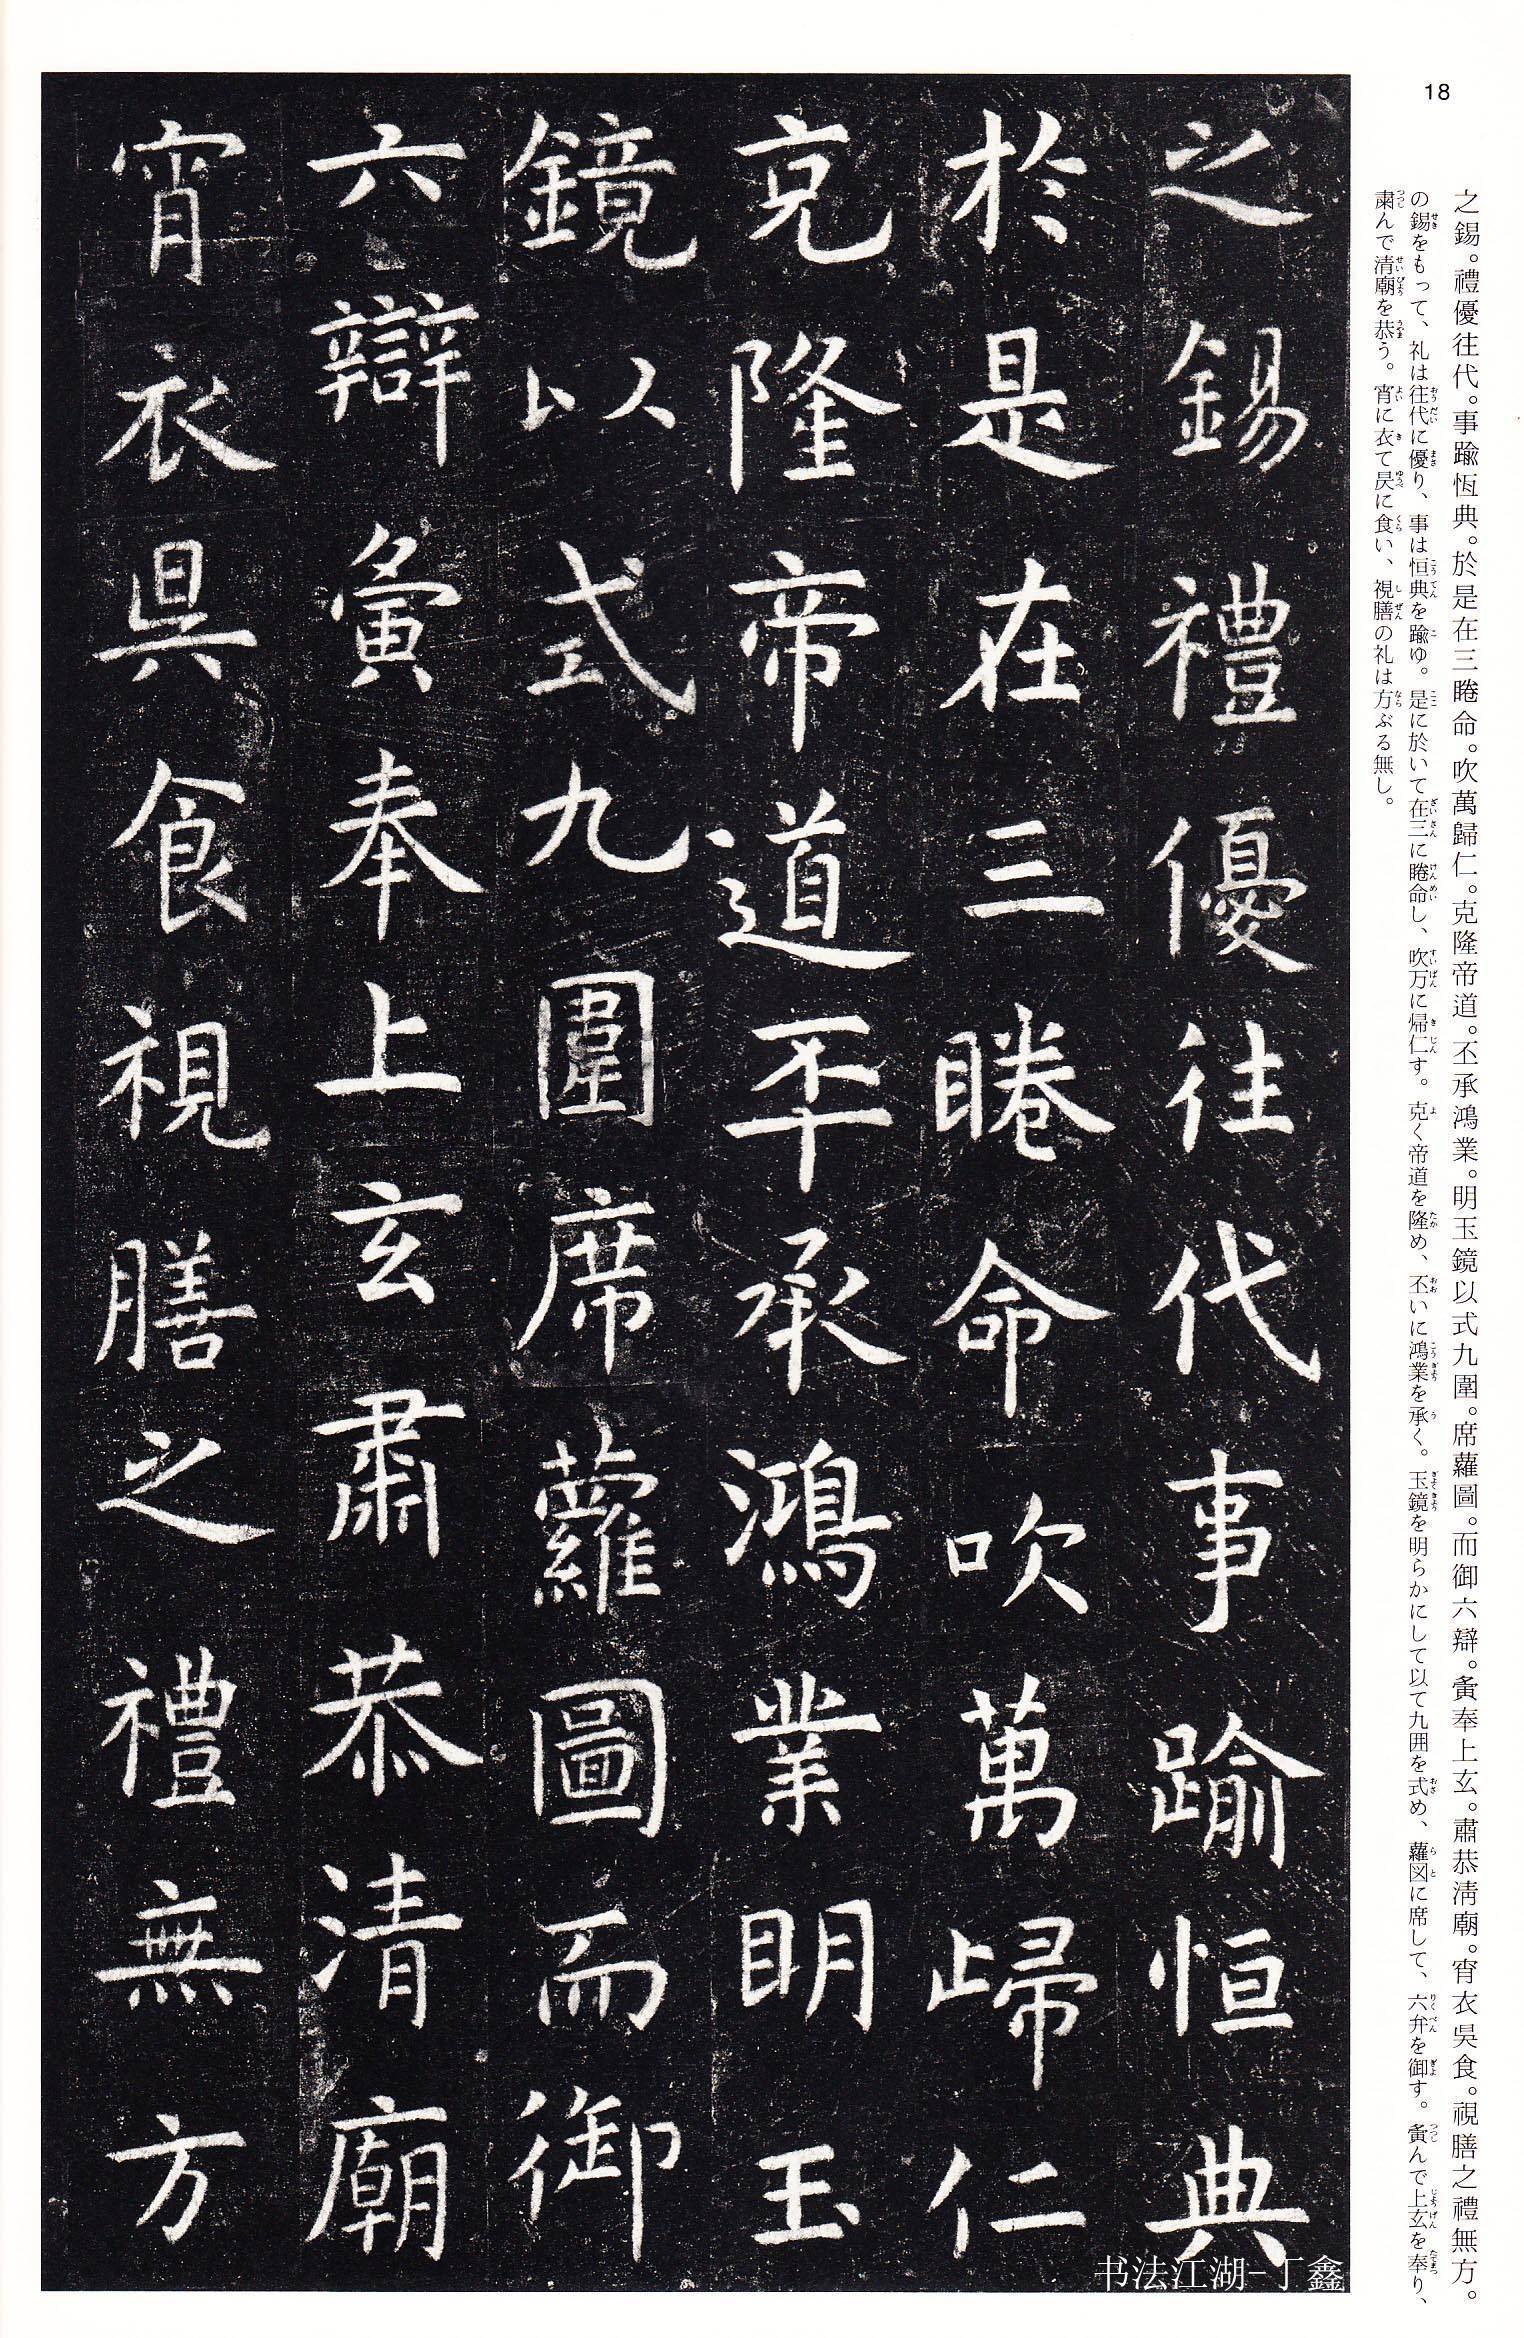 18
之錫。禮優往代。事踰恆典。於是在三睠命。吹萬歸仁。克隆帝道。丕承鴻業。明玉鏡以式九圍。席蘿圖。而御六辯。夤奉上玄。肅恭清廟。宵衣昃食。視膳之禮無方。
の錫をもって、礼は往代に優り、事は恒典を踰ゆ。是に於いて在三に睠命し、吹万に帰仁す。克く帝道を隆め、丕いに鴻業を承く。玉鏡を明らかにして以て九囲を式め、蘿図に席して、六弁を御す。夤んで上玄を奉り、
粛んで清廟を恭う。宵に衣て昃に食い、視膳の礼は方ぶる無し。
之錫禮優往代事踰恒典
於是在三睠命吹萬歸仁
克隆帝道丕承鴻業明玉
鏡以式九圍席蘿圖而御
六辯夤奉上玄肅恭清廟
宵衣昃食視膳之禮無方
书法江湖-丁鑫